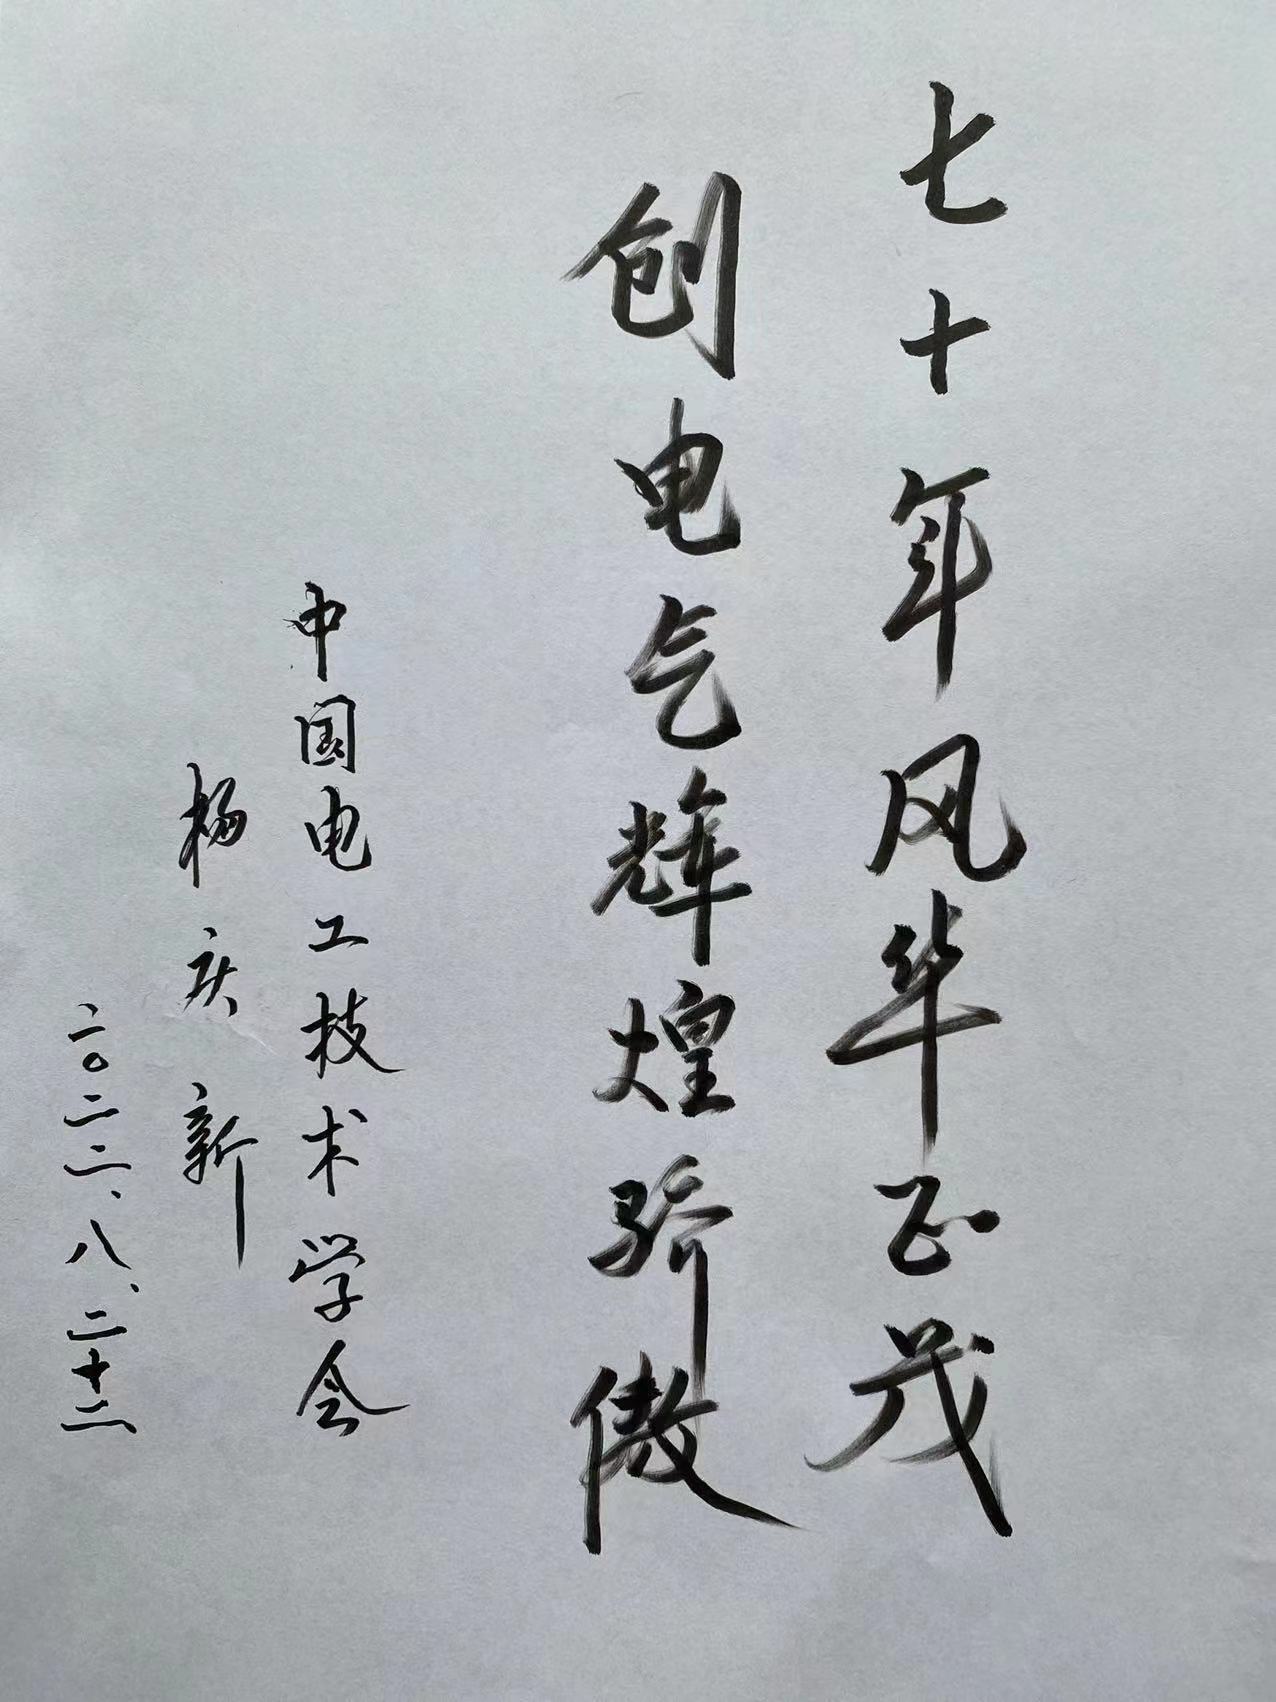 七十年风华正茂
创电气辉煌骄傲
中国电工技术学会
杨庆新
二〇二二、八、二十二